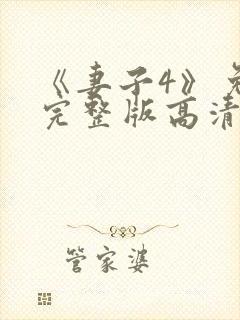 《妻子4》
完整版高清
管家婆